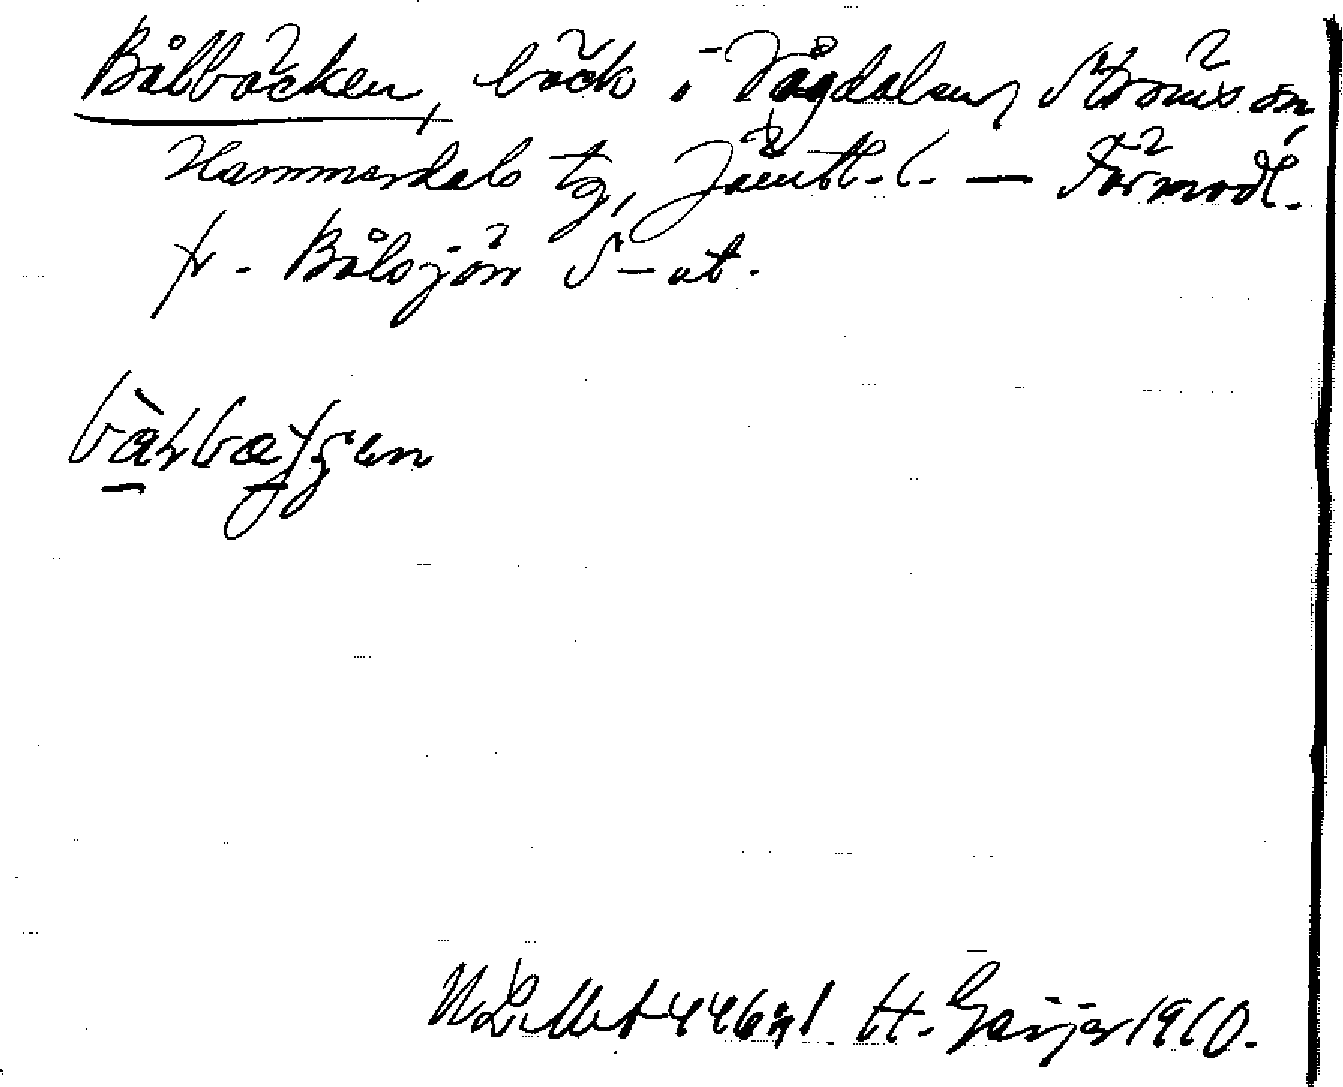 Bålbäcken, bäck i Vågdalen, Ströms sn,
Hammerdals tg, Jämtl. l. — Förmodl.
fr. Bålsjön S-ut.
H. Geijer 1910.